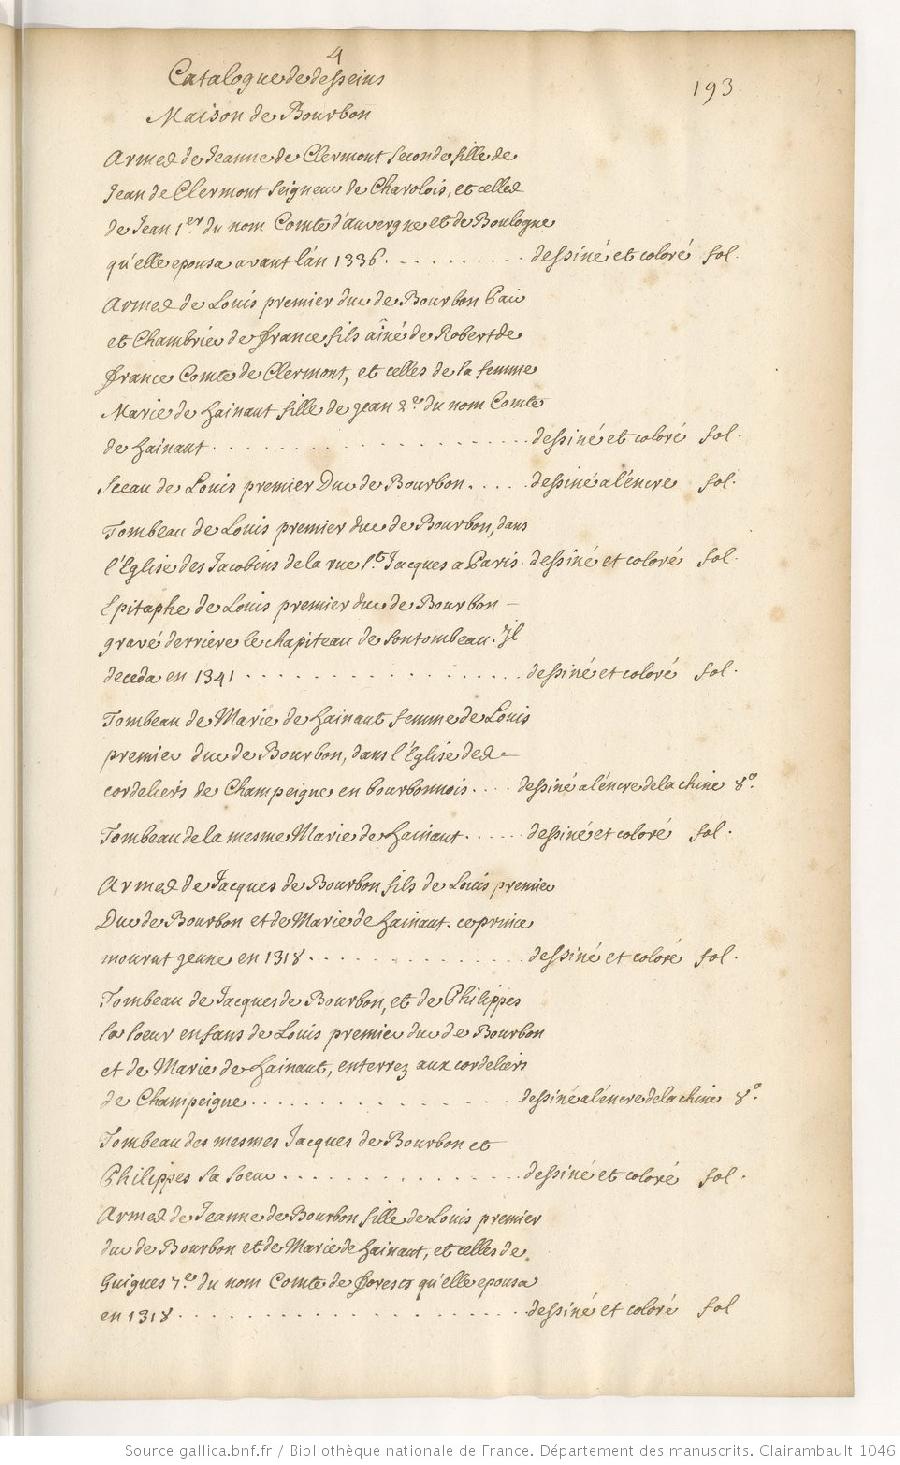 4
Catalogue de desseins
193
Maison de Bourbon
Armes de Jeanne de Clermont seconde fille de
Jean de Clermont Seigneur de Charolois, et celles
de Jean 1er du nom Comte d'auvergne et de Boulogne
qu'elle epousa avant l'an 1336. . . . . . . . . . dessiné et coloré fol.
Armes de Louis premier duc de Bourbon Pair
et Chambrier de france fils aîné de Robert de
france Comte de Clermont, et celles de sa femme
Marie de hainaut fille de jean 2e du nom Comte
de hainaut . . . . . . . . . . . . . . . . . . dessiné et coloré fol.
Sceau de Louis premier Duc de Bourbon . . . . dessiné a l'encre fol.
Tombeau de Louis premier duc de Bourbon, dans
l'Eglise des Jacobins de la rue St. Jacques a Paris dessiné et coloré fol.
Epitaphe de Louis premier duc de Bourbon –
gravé derriere le chapiteau de son tombeau. Il
deceda en 1341 . . . . . . . . . . . . . . . . dessiné et coloré fol.
Tombeau de Marie de hainaut femme de Louis
premier duc de Bourbon, dans l'Eglise des –
cordeliers de Champeigne en bourbonnois . . . . dessiné a l'encre de la chine 8o.
Tombeau de la mesme Marie de hainaut . . . . . dessiné et coloré fol.
Armes de Jacques de Bourbon fils de Louis premier
Duc de Bourbon et de Marie de hainaut. ce prince
mourut jeune en 1318 . . . . . . . . . . . . . dessiné et coloré fol.
Tombeau de Jacques de Bourbon, et de Philippes
sa soeur enfans de Louis premier duc de Bourbon
et de Marie de hainaut, enterrez aux cordeliers
de Champeigne . . . . . . . . . . . . . . . . dessiné a l'encre de la chine 8o.
Tombeau des mesmes Jacques de Bourbon et
Philippes sa soeur . . . . . . . . . . . . . . dessiné et coloré fol.
Armes de Jeanne de Bourbon fille de Louis premier
duc de Bourbon et de Marie de hainaut, et celles de
Guigues 7e du nom Comte de forests qu'elle epousa
en 1318 . . . . . . . . . . . . . . . . . . . . dessiné et coloré fol
Source gallica.bnf.fr / Bibliothèque nationale de France. Département des manuscrits. Clairambault 1046